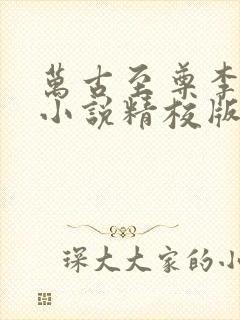 萬古至尊李
小說精校版
琛大大家的小